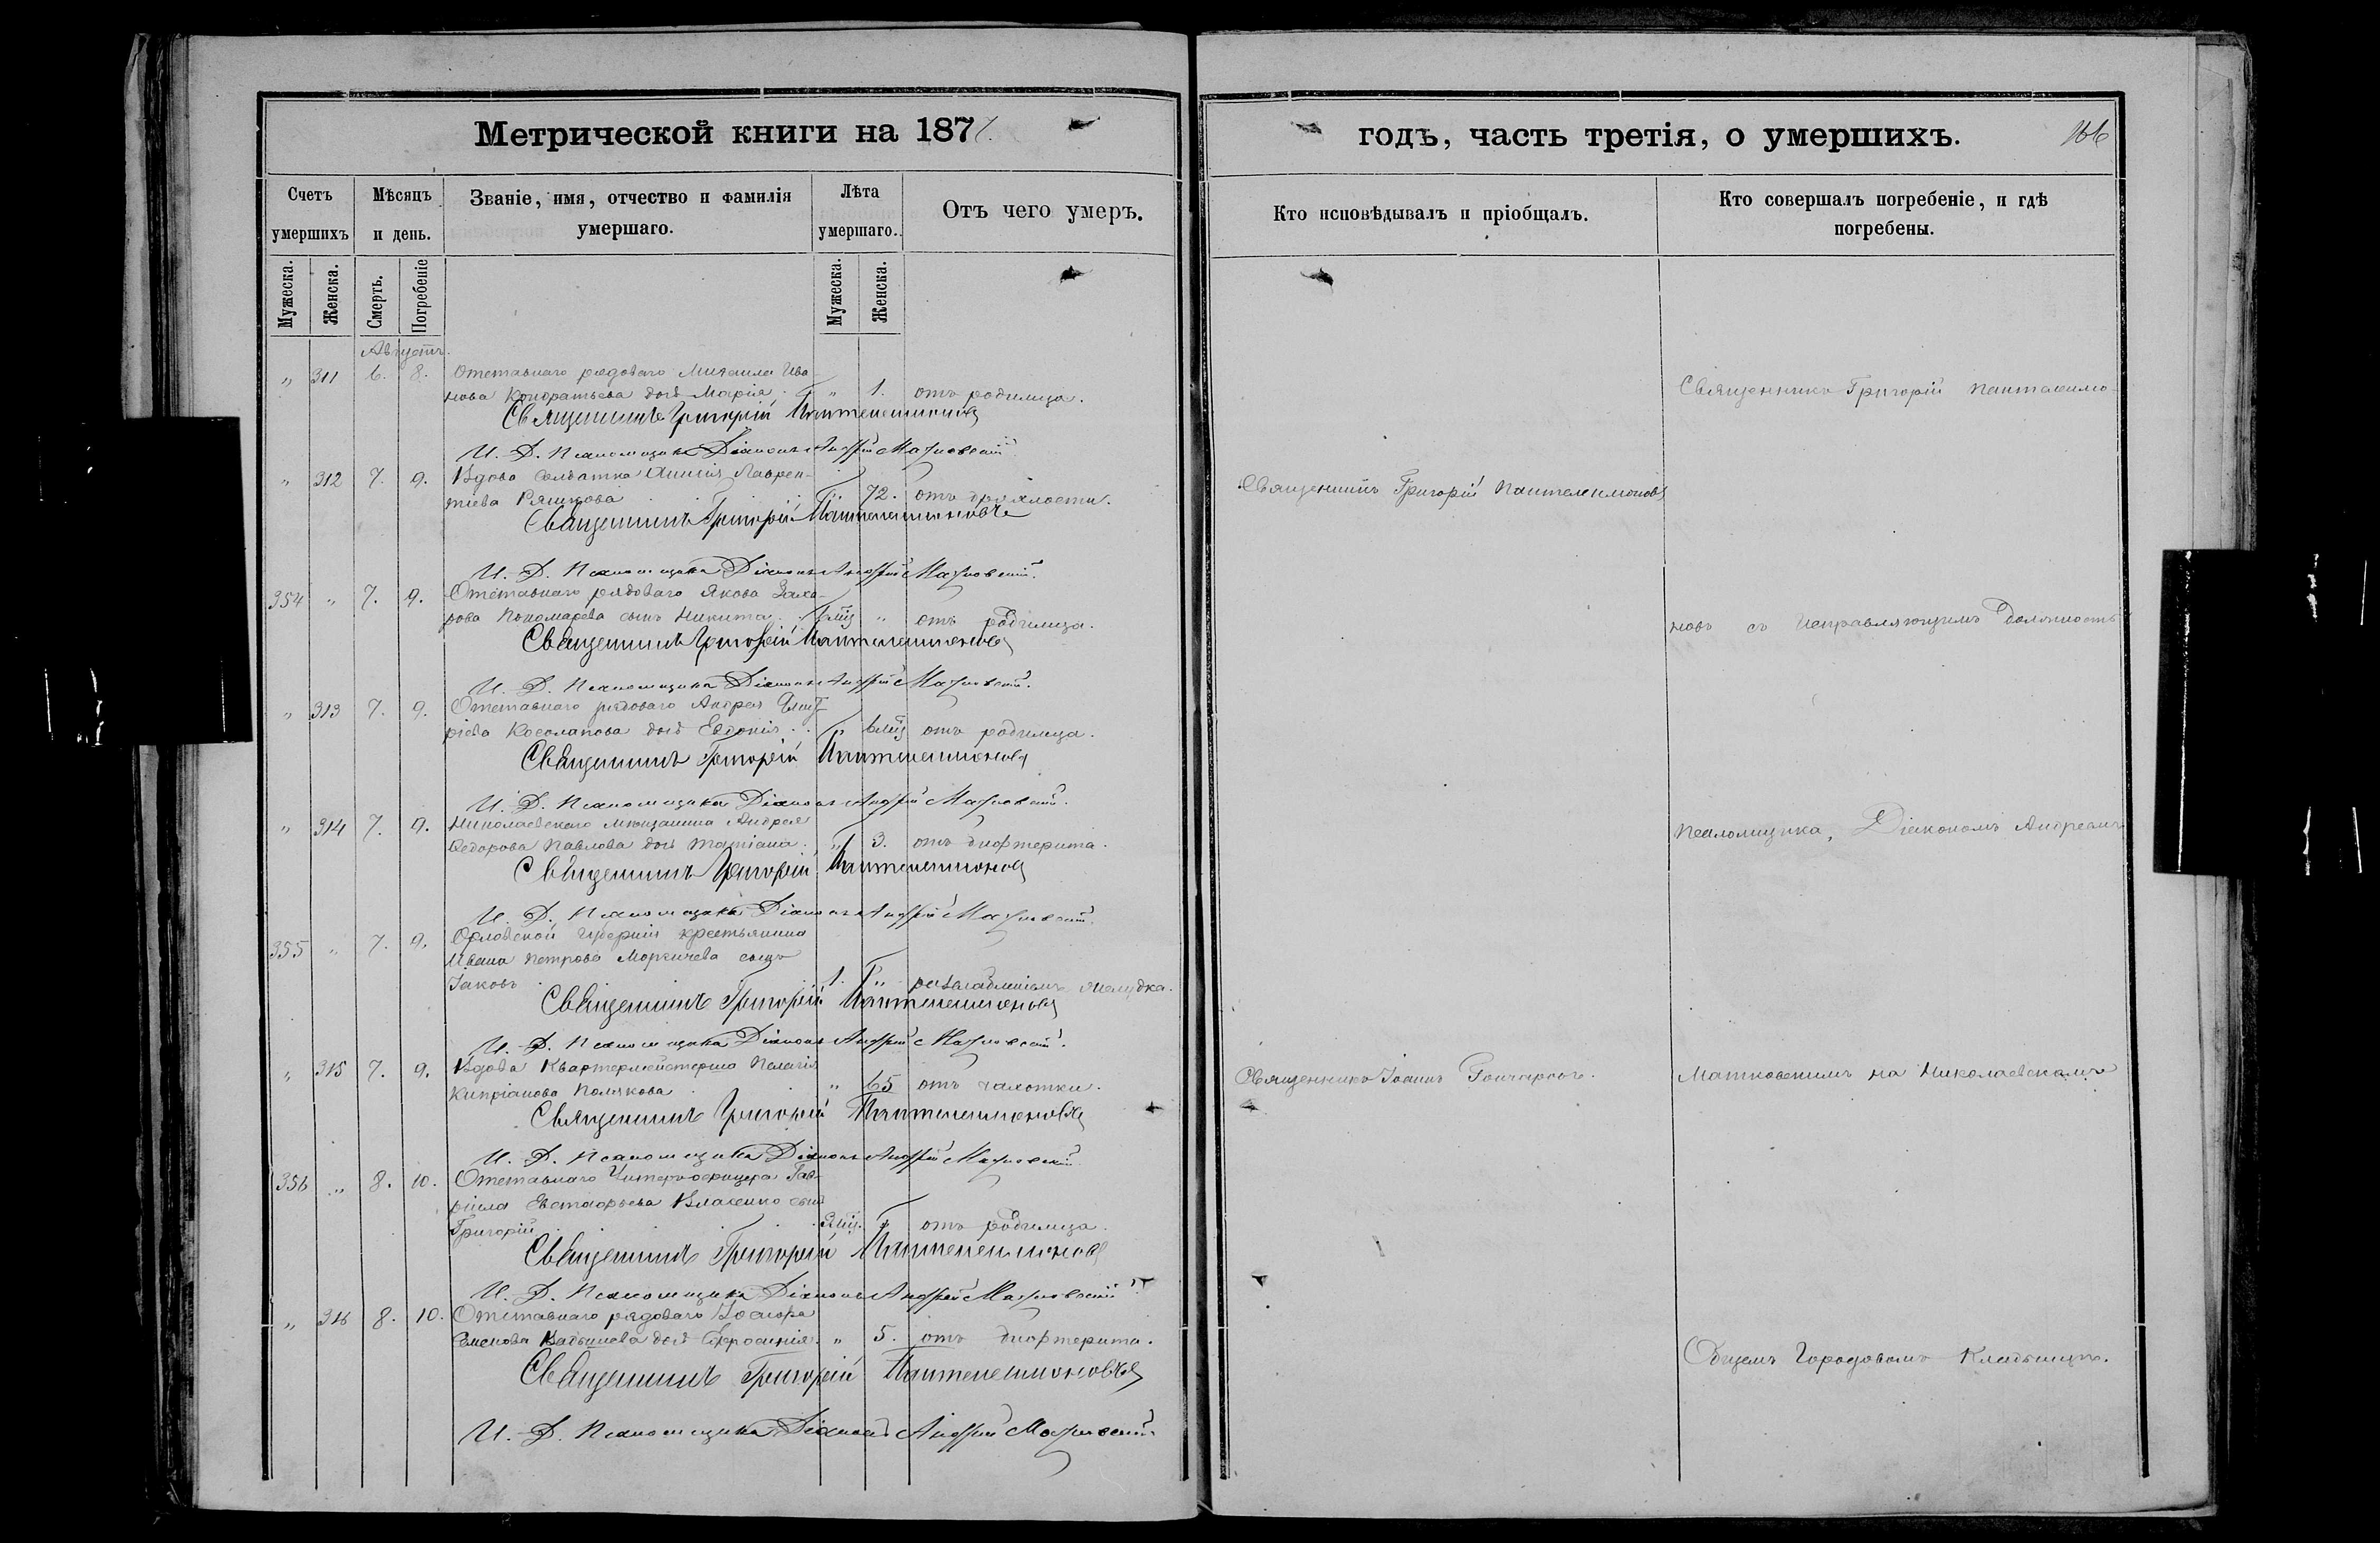 Метрической книги на 187
годъ, часть третія, о умершихъ.
166
Счетъ умершихъ
Мѣсяцъ и день.
Званіе, имя, отчество и фамилія умершаго.
Лѣта умершаго.
Отъ чего умеръ.
Кто исповѣдывалъ и пріобщалъ.
Кто совершалъ погребеніе, и гдѣ погребены.
Мужеска.
Женска.
Смерть.
Погребеніе
Мужеска.
Женска.
Августъ.
" 311 6. 8. Отставнаго рядоваго Михаила Ива-
нова Кондратьева дочь Марія " 1. отъ родимца.
Священникъ Григорій Пантелеимоновъ
И. Д. Псаломщика Діаконъ Андрей Матковскій
" 312 7. 9. Вдова Солдатка Лаврен-
тіева " 72. отъ дряхлости.
Священникъ Григорій Пантелеимоновъ
И. Д. Псаломщика Діаконъ Андрей Матковскій.
354 " 7. 9. Отставнаго рядоваго Якова Заха-
рова Пономарева сынъ Никита " отъ родимца.
Священникъ Григорій Пантелеимоновъ
И. Д. Псаломщика Діаконъ Андрей Матковскій.
" 313 7. 9. Отставнаго рядоваго Андрея Дмит-
ріева Косолапова дочь Евдокія " 6 мѣс отъ родимца.
Священникъ Григорій Пантелеимоновъ
И. Д. Псаломщика Діаконъ Андрей Матковскій.
" 314 7. 9. Николаевскаго мѣщанина Андрея
Ѳедорова Павлова дочь Татіана " 3. отъ дифтерита.
Священникъ Григорій Пантелеимоновъ
И. Д. Псаломщика Діаконъ Андрей Матковскій.
355 " 7. 9. Орловской Губерніи крестьянина
Ивана Петрова сынъ
Іаковъ 1. " желудка.
Священникъ Григорій Пантелеимоновъ
И. Д. Псаломщика Діаконъ Андрей Матковскій.
" 315 7. 9. Вдова Квартермейстерша Пелагія
Кипріанова Полякова " 65 отъ чахотки.
Священникъ Григорій Пантелеимоновъ
И. Д. Псаломщика Діаконъ Андрей Матковскій
356 " 8. 10. Отставнаго Унтерофицера Гав-
ріила Евстафьева Власенко сынъ
Григорій " отъ родимца.
Священникъ Григорій Пантелеимоновъ
И. Д. Псаломщика Діаконъ Андрей Матковскій
" 316 8. 10. Отставнаго рядоваго
Семенова дочь Ефросинія " 5. отъ дифтерита.
Священникъ Григорій Пантелеимоновъ
И. Д. Псаломщика Діаконъ Андрей Матковскій
Священникъ Григорій Пантелеимоновъ
Священникъ Іоаннъ
Священникъ Григорій Пантелеимо-
новъ съ Исправляющимъ Должность
Псаломщика, Діакономъ Андреемъ
Матковскимъ на Николаевскомъ
Общемъ Городовомъ Кладбищѣ.